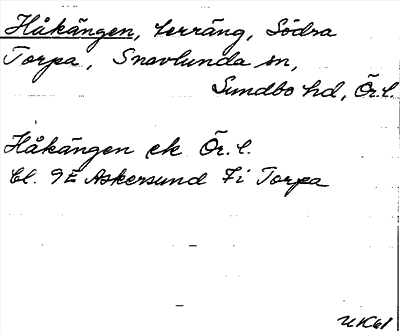 Håkängen, terräng, Södra
Torpa, Snavlunda sn,
Sundbo hd, Ör.l.
Håkängen ek Ör.l.
Bl. 9E Askersund 7i Torpa
UK61